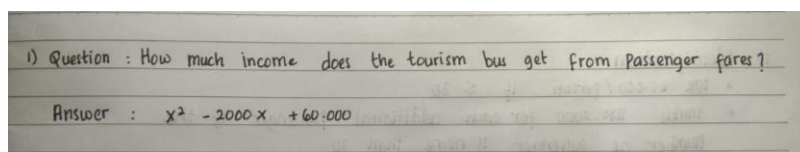 1) Question : How much income does the tourism bus get from Passenger fares?
Answer : x² - 2000 x + 60.000